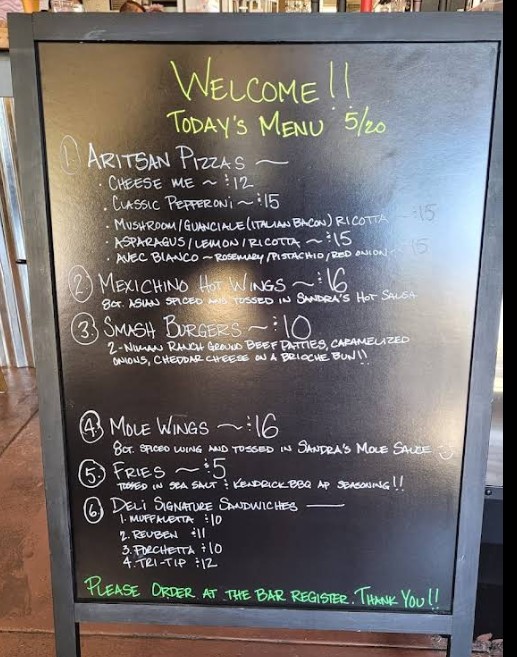 WELCOME!!
TODAY'S MENU 5/20
1 ARITSAN PIZZAS ~
· CHEESE ME ~ $12
· CLASSIC PEPPERONI ~ $15
· MUSHROOM/GUANCIALE (ITALIAN BACON) RICOTTA ~ $15
· ASPARAGUS/LEMON/RICOTTA ~ $15
· AVEC BIANCO ~ ROSEMARY/PISTACHIO/RED ONION ~ $15
2 MEXICHINO HOT WINGS ~ $16
8CT. ASIAN SPICED AND TOSSED IN SANDRA'S HOT SALSA
3 SMASH BURGERS ~ $10
2-NIMAN RANCH GROUND BEEF PATTIES, CARAMELIZED
ONIONS, CHEDDAR CHEESE ON A BRIOCHE BUN!!
4 MOLE WINGS ~ $16
8CT. SPICED WING AND TOSSED IN SANDRA'S MOLE SAUCE
5. FRIES ~ $5
TOSSED IN SEA SALT & KENDRICK BBQ AP SEASONING!!
6 DELI SIGNATURE SANDWICHES —
1. MUFFALETTA $10
2. REUBEN $11
3. PORCHETTA $10
4. TRI-TIP $12
PLEASE ORDER AT THE BAR REGISTER. THANK YOU!!